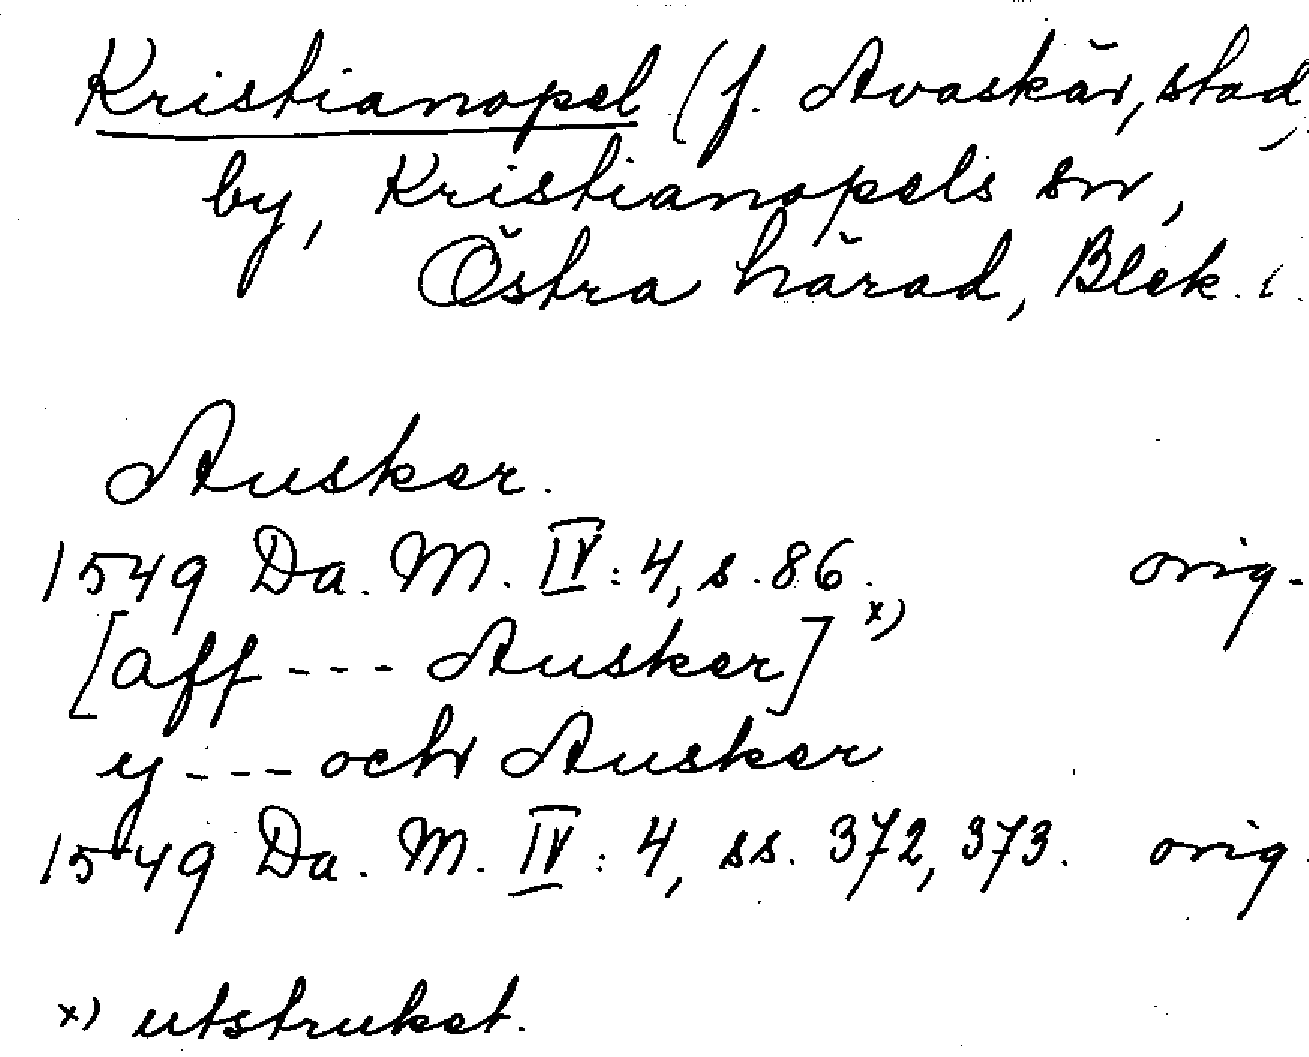 Kristianopel (f. Avaskär, stad,
by, Kristianopels sn,
Östra härad, Blek. l.
Ausker.
1549 Da. M. IV: 4, s. 86. orig.
[aff --- Ausker] x)
y --- och Ausker
1549 Da. M. IV: 4, ss. 372, 373. orig.
x) utstruket.